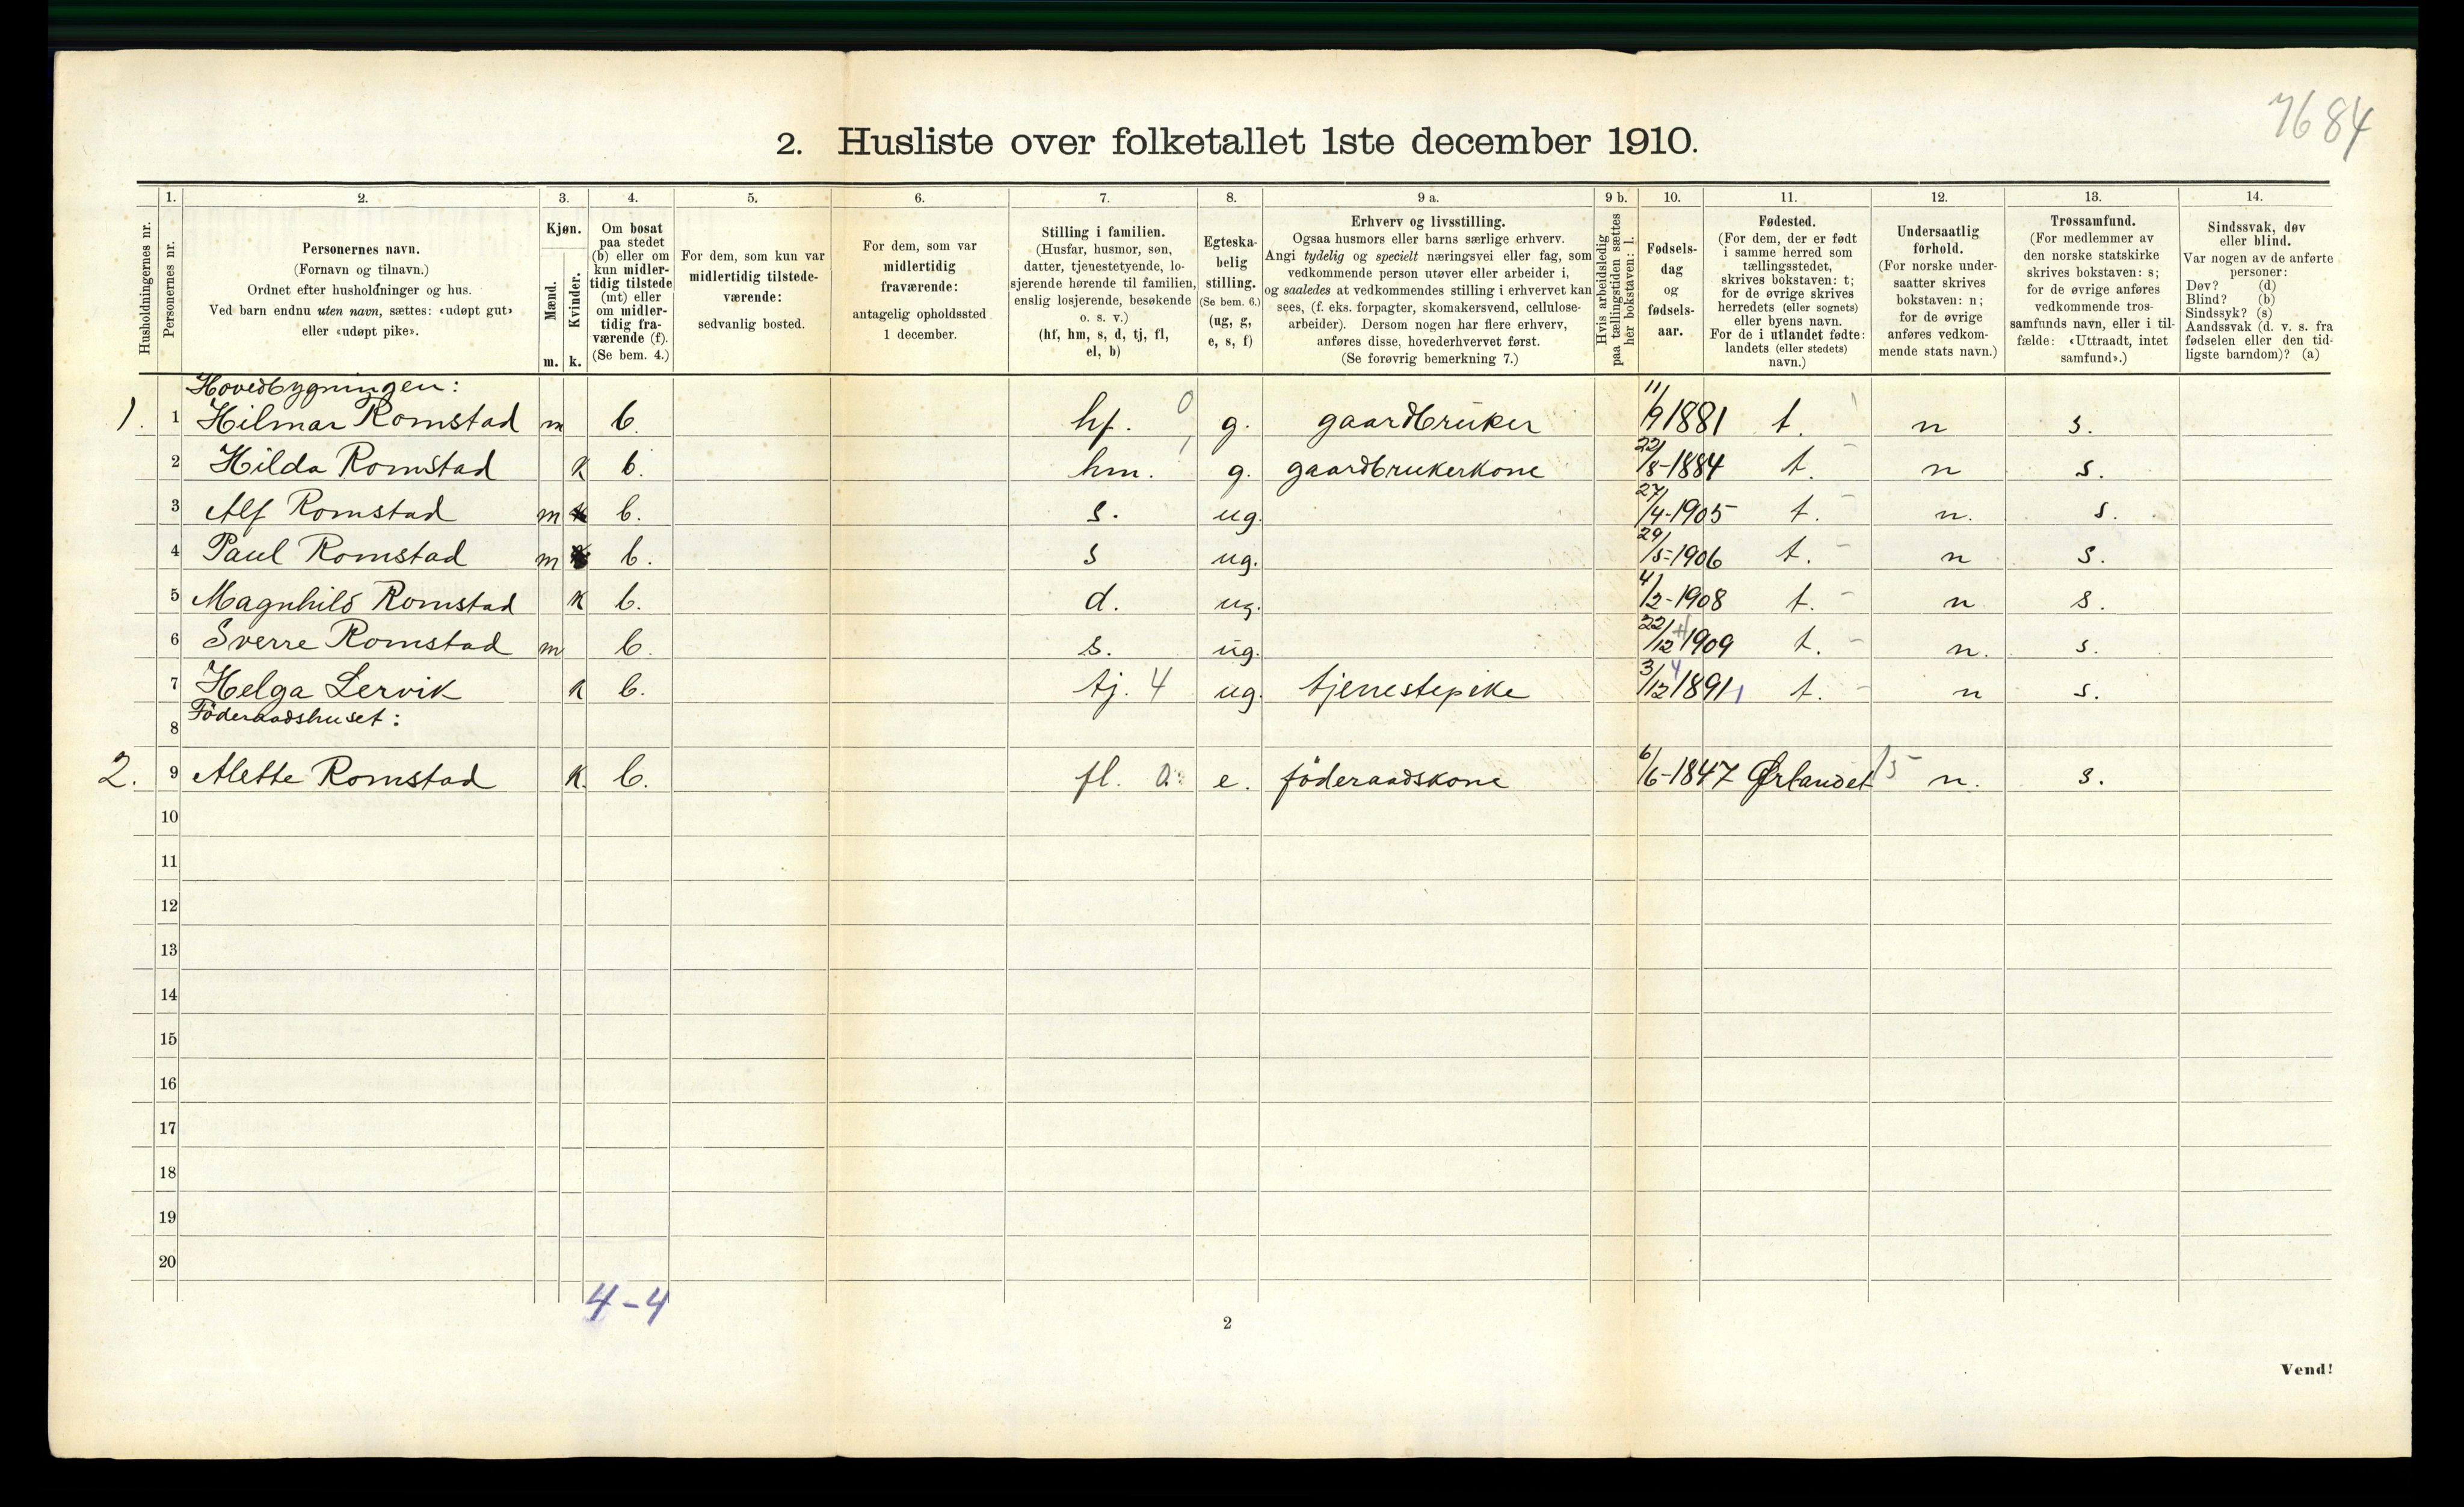 7684
2. Husliste over folketallet 1ste december 1910.
1. 2. 3. 4. 5. 6. 7. 8. 9 a. 9 b. 10. 11. 12. 13. 14.
Husholdningernes nr.
Personernes nr.
Personernes navn.
(Fornavn og tilnavn.)
Ordnet efter husholdninger og hus.
Ved barn endnu uten navn, sættes: «udøpt gut»
eller «udøpt pike».
Kjøn.
Mænd.
m.
Kvinder.
k.
Om bosat
paa stedet
(b) eller om
kun midler-
tidig tilstede
(mt) eller
om midler-
tidig fra-
værende (f).
(Se bem. 4.)
For dem, som kun var
midlertidig tilstede-
værende:
sedvanlig bosted.
For dem, som var
midlertidig
fraværende:
antagelig opholdssted
1 december.
Stilling i familien.
(Husfar, husmor, søn,
datter, tjenestetyende, lo-
sjerende hørende til familien,
enslig losjerende, besøkende
o. s. v.)
(hf, hm, s, d, tj, fl,
el, b)
Egteska-
belig
stilling.
(Se bem. 6.)
(ug, g,
e, s, f)
Erhverv og livsstilling.
Ogsaa husmors eller barns særlige erhverv.
Angi tydelig og specielt næringsvei eller fag, som
vedkommende person utøver eller arbeider i,
og saaledes at vedkommendes stilling i erhvervet kan
sees, (f. eks. forpagter, skomakersvend, cellulose-
arbeider). Dersom nogen har flere erhverv,
anføres disse, hovederhvervet først.
(Se forøvrig bemerkning 7.)
Hvis arbeidsledig
paa tællingstiden sættes
her bokstaven: l.
Fødsels-
dag
og
fødsels-
aar.
Fødested.
(For dem, der er født
i samme herred som
tællingsstedet,
skrives bokstaven: t;
for de øvrige skrives
herredets (eller sognets)
eller byens navn.
For de i utlandet fødte:
landets (eller stedets)
navn.)
Undersaatlig
forhold.
(For norske under-
saatter skrives
bokstaven: n;
for de øvrige
anføres vedkom-
mende stats navn.)
Trossamfund.
(For medlemmer av
den norske statskirke
skrives bokstaven: s;
for de øvrige anføres
vedkommende tros-
samfunds navn, eller i til-
fælde: «Uttraadt, intet
samfund».)
Sindssvak, døv
eller blind.
Var nogen av de anførte
personer:
Døv? (d)
Blind? (b)
Sindssyk? (s)
Aandssvak (d. v. s. fra
fødselen eller den tid-
ligste barndom)? (a)
Hovedbygningen:
1. 1 Hilmar Romstad m b. hf. 0 g. gaardbruker 11/9 1881 t. n s.
2 Hilda Romstad k b. hm. g. gaardbrukerkone 22/8-1884 t. n s.
3 Alf Romstad m b. s. ug. 27/4-1905 t. n. s.
4 Paul Romstad m b. s ug. 29/5-1906 t. n s.
5 Magnhild Romstad k b. d. ug. 4/2-1908 t. n s.
6 Sverre Romstad m b. s. ug. 22/12 1909 t. n. s.
7 Helga Lervik k b. tj. 4 ug. tjenestepike 3/12 1891 t. n s.
Föderaadshuset:
8
2. 9 Alette Romstad k. b. fl. 0 e. föderaadskone 6/6-1847 Ørlandet 15 n. s.
10
11
12
13
14
15
16
17
18
19
20
4-4
2
Vend!